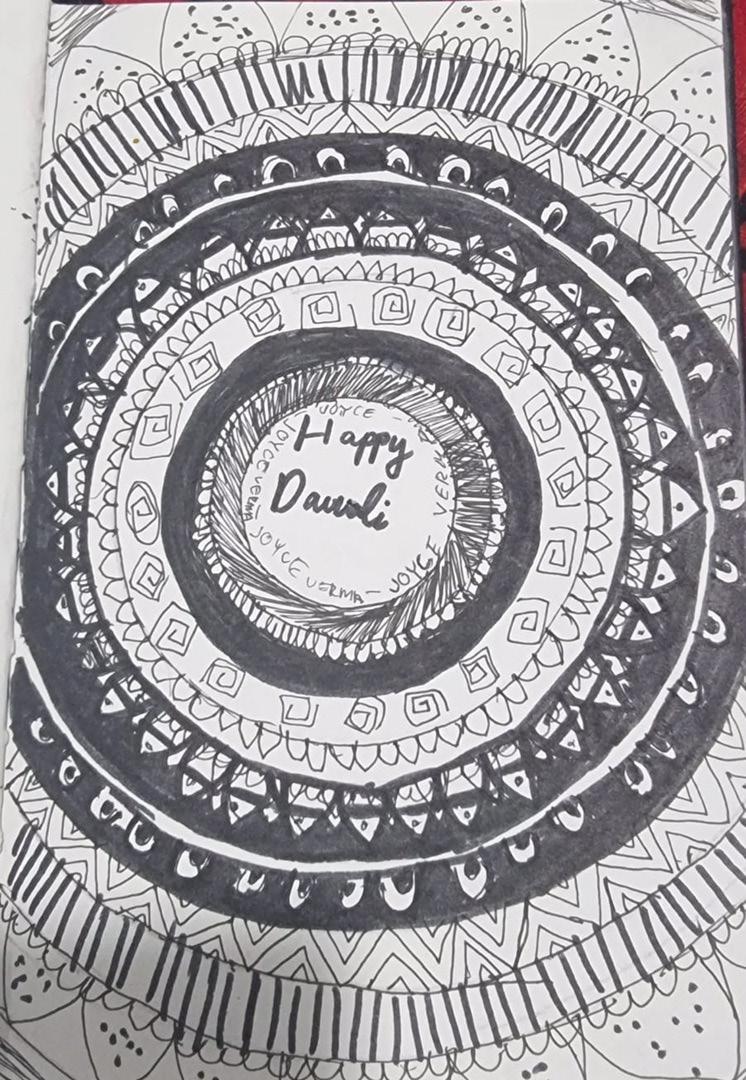 Happy
Dawali
JOYCE
JOYCE VERMA
JOYCE VERMA - JOYCE
VERMA